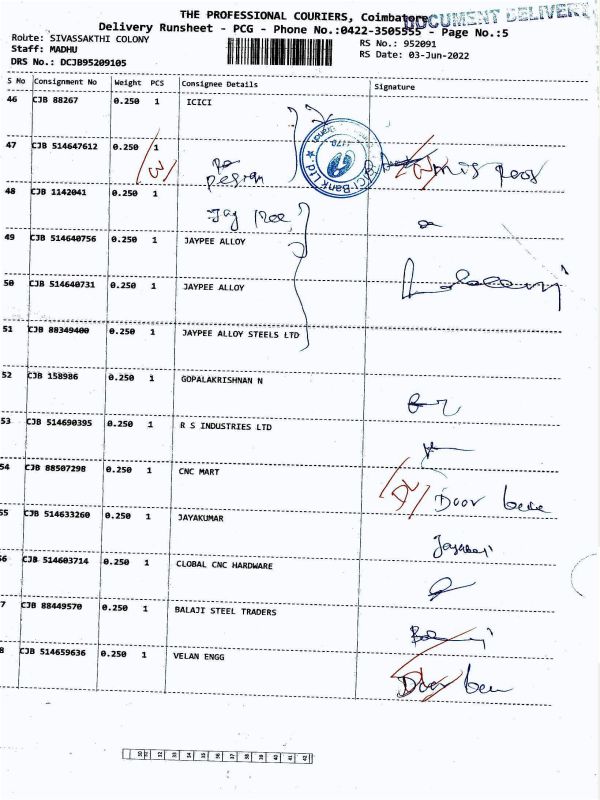 THE PROFESSIONAL COURIERS, Coimbatore
DOCUMENT DELIVERY
Delivery Runsheet - PCG - Phone No.:0422-3505555 - Page No.:5
Route: SIVASSAKTHI COLONY
Staff: MADHU
DRS No.: DCJB95209105
RS No.: 952091
RS Date: 03-Jun-2022
S No Consignment No Weight PCS Consignee Details Signature
46 CJB 88267 0.250 1 ICICI
47 CJB 514647612 0.250 1
48 CJB 1142041 0.250 1
49 CJB 514640756 0.250 1 JAYPEE ALLOY
50 CJB 514640731 0.250 1 JAYPEE ALLOY
51 CJB 80349400 0.250 1 JAYPEE ALLOY STEELS LTD
52 CJB 158986 0.250 1 GOPALAKRISHNAN N
53 CJB 514690395 0.250 1 R S INDUSTRIES LTD
54 CJB 88507298 0.250 1 CNC MART
Door
55 CJB 514633260 0.250 1 JAYAKUMAR
56 CJB 514603714 0.250 1 CLOBAL CNC HARDWARE
7 CJB 88449570 0.250 1 BALAJI STEEL TRADERS
8 CJB 514659636 0.250 1 VELAN ENGG
Door